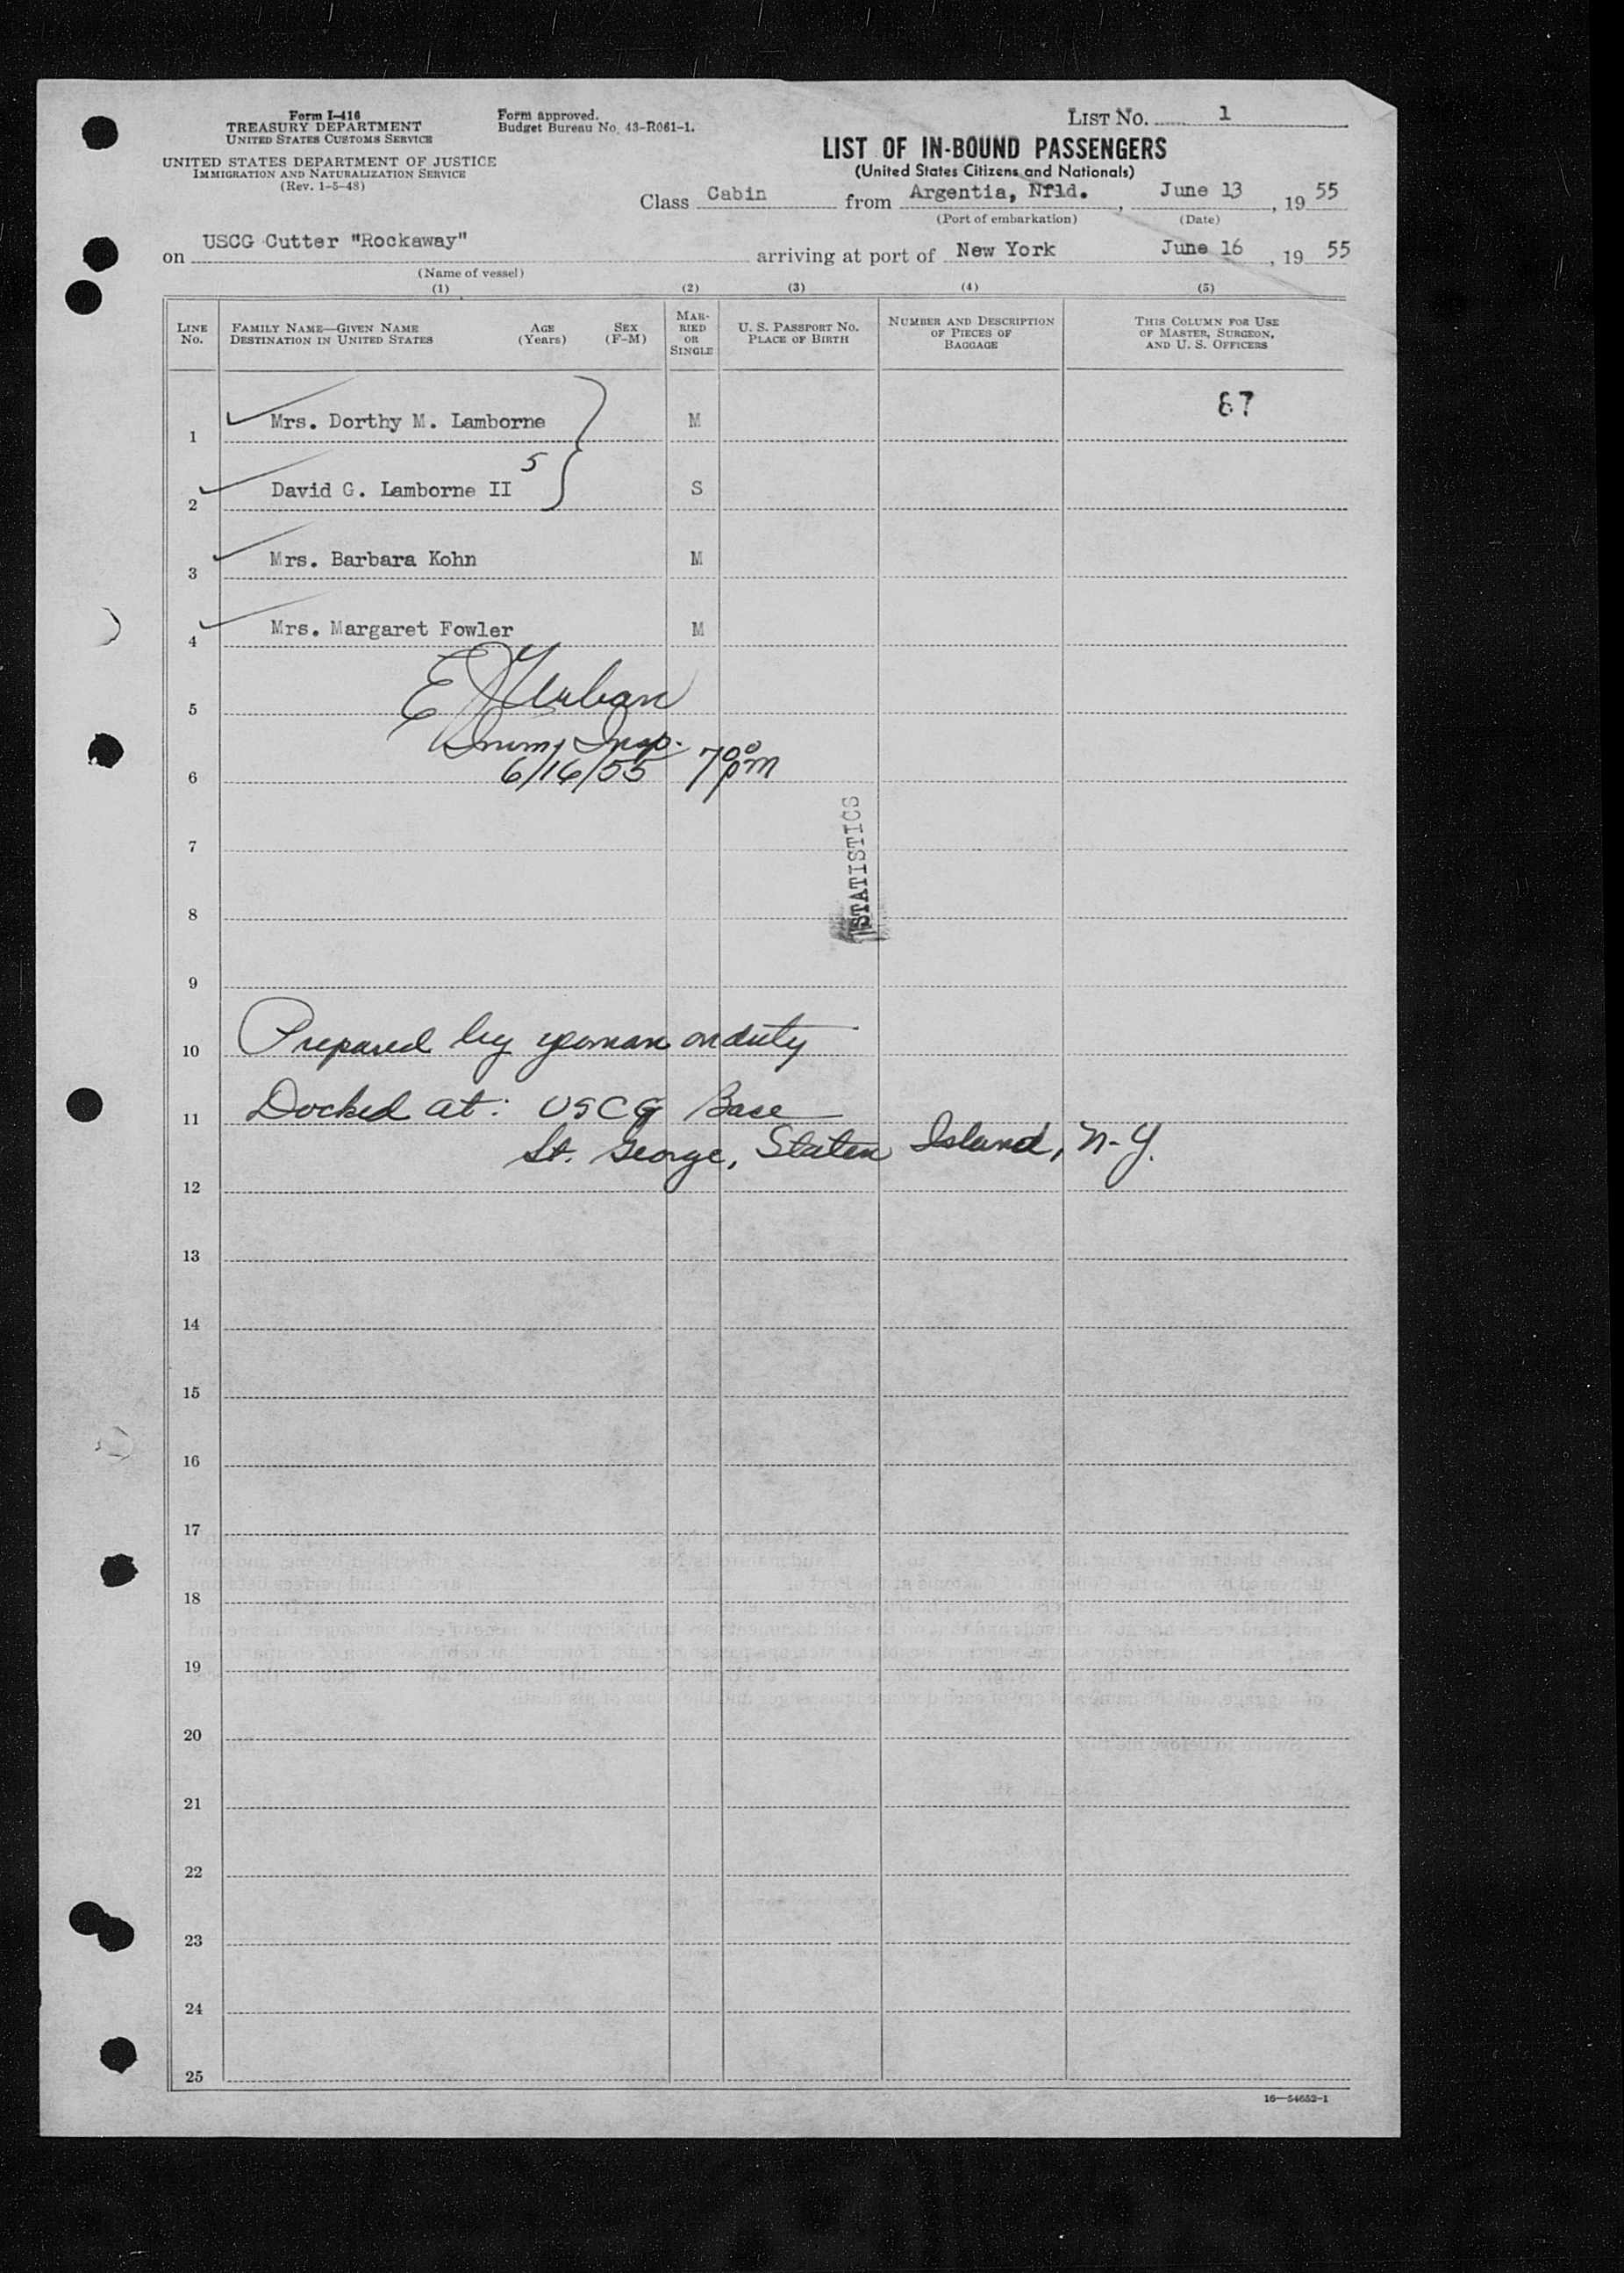 Form I-416
TREASURY DEPARTMENT
UNITED STATES CUSTOMS SERVICE
UNITED STATES DEPARTMENT OF JUSTICE
IMMIGRATION AND NATURALIZATION SERVICE
(Rev. 1-5-48)
Form approved.
Budget Bureau No. 43-R061-1.
LIST No. 1
LIST OF IN-BOUND PASSENGERS
(United States Citizens and Nationals)
Class Cabin from Argentia, Nfld. , June 13 , 19 55
(Port of embarkation) (Date)
on USCG Cutter "Rockaway" arriving at port of New York June 16 , 19 55
(Name of vessel)
(1) (2) (3) (4) (5)
LINE No.
FAMILY NAME—GIVEN NAME
DESTINATION IN UNITED STATES
AGE
(Years)
SEX
(F-M)
MAR-
RIED
OR
SINGLE
U. S. PASSPORT No.
PLACE OF BIRTH
NUMBER AND DESCRIPTION
OF PIECES OF
BAGGAGE
THIS COLUMN FOR USE
OF MASTER, SURGEON,
AND U. S. OFFICERS
87
1 Mrs. Dorthy M. Lamborne M
5
2 David G. Lamborne II S
3 Mrs. Barbara Kohn M
4 Mrs. Margaret Fowler M
5 Urban
Imm, Insp.
6 6/16/55 700 pm
STATISTICS
7
8
9
10 Prepared by yeoman on duty
11 Docked at: USCG Base
St. George, Staten Island, N.Y.
12
13
14
15
16
17
18
19
20
21
22
23
24
25
16—54652-1